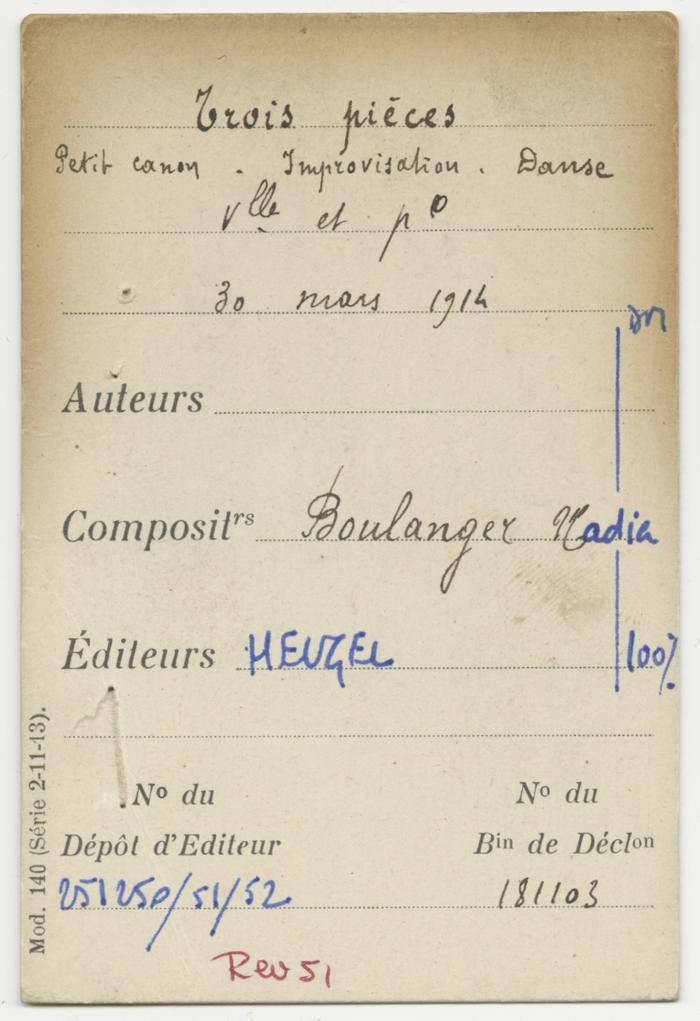 Trois pièces
Petit canon . Improvisation . Danse
Vlle et pº
30 mars 1914
Auteurs
Compositrs Boulanger Nadia
Éditeurs HEUGEL 100%
Nº du
Dépôt d'Editeur
251250/51/52
Nº du
Bin de Déclon
181103
Rev 51
Mod. 140 (Série 2-11-13).